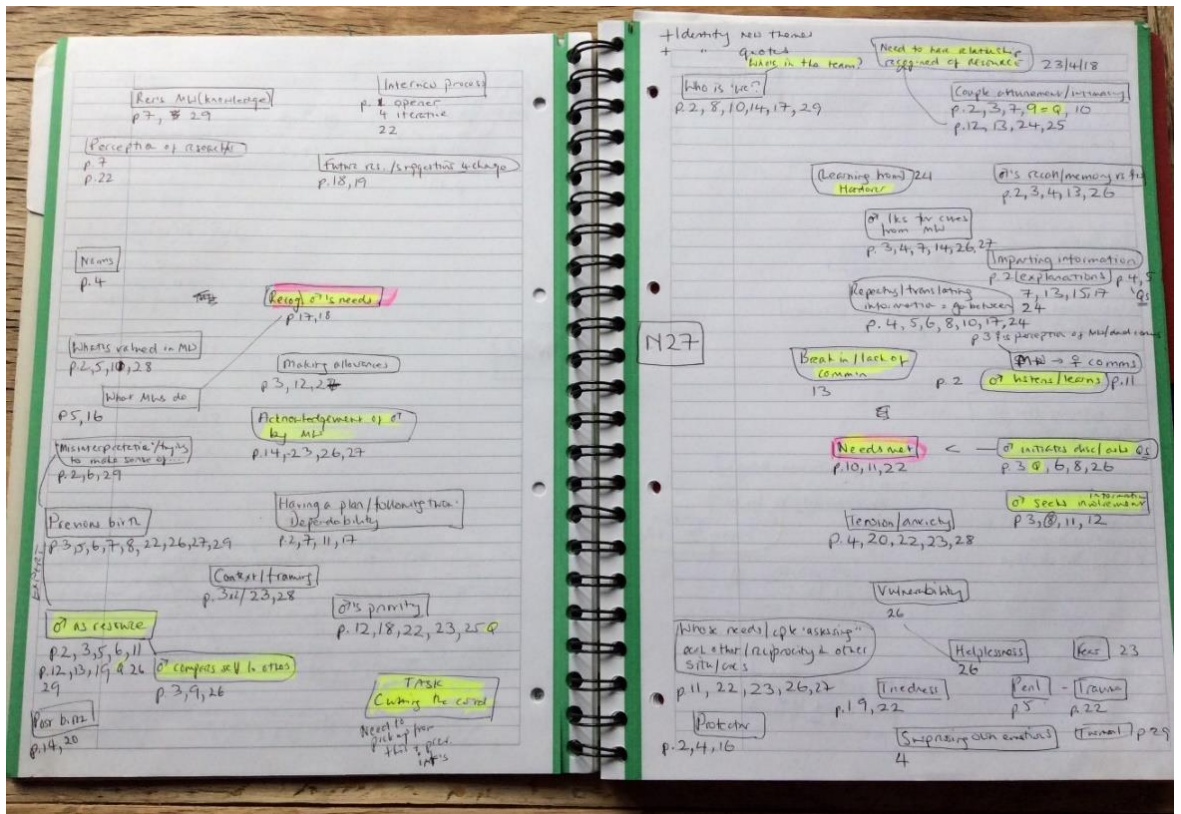 Interview process
p. opener
4 iterative
22
Res's MW (knowledge)
p7, 29
Perception of researcher
p.7
p.22
Future res./suggestions 4 change
p.18,19
Names
p.4
Recog ♂'s needs
p17,18
What's valued in MW
p.2,5,10,28
Making allowances
p3, 12,27
What MWs do
p5, 16
Acknowledgement of ♂
by MW
p.14, 23, 26, 27
Misinterpretatn/trying
to make sense of...
p.2,6,29
Having a plan/following thro'.
Dependability
p.2, 7, 11, 17
Previous birth
p3,5,6,7,8,22,26,27,29
EXPERT
Context/framing
p.3 23,28
♂'s priority
p. 12,18, 22, 23, 25 Q
♂ as resource
p.2, 3, 5, 6, 11
p.12, 13, 19 Q 26
29
♂ compares self to others
p.3,9,26
TASK
Cutting the cord
Need to
pick up from
this & prev.
int's
Post birth
p.14, 20
+ Identify new themes
+ " quotes
Who's in the team?
Need to have relationship
recognised as resource
23/4/18
Who is 'we'?
p.2, 8, 10, 14, 17, 29
Couple attunement/intimacy
p.2, 3, 7, 9 = Q, 10
p.12, 13, 24, 25
Learning from 24
♂'s recall/memory
p.2, 3, 4, 13, 26
♂ lks for cues
from MW
p. 3, 4, 7, 14, 26, 27
Imparting information
p.2 (explanations) p.4, 5
7, 13, 15, 17 Qs
Repeats/translating
information = go between 24
p. 4, 5, 6, 8, 10, 17, 24
N27
MW → ♀ comms
Break in/lack of
commun
13
p.2 ♂ listens/learns p.11
Needs met
p.10, 11, 22
< — ♂ initiates disc/asks Qs
p. 3 Q, 6, 8, 26
♂ seeks information
involvement
p 3, 8, 11, 12
Tension/anxiety
p. 4, 20, 22, 23, 28
Vulnerability
26
Whose needs/cple "assessing"
each other/reciprocity & other
p.11, 22, 23, 26, 27
Helplessness
26
Fear 23
Tiredness
p.19, 22
Peril - Trauma
p5 p.22
Protector
p.2, 4, 16
Suppressing own emotions
4
p 29